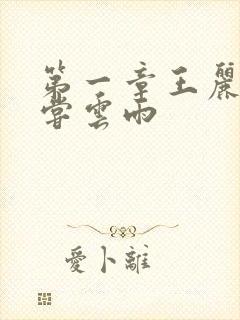 第一章王麗
嘗雲雨
愛卜離